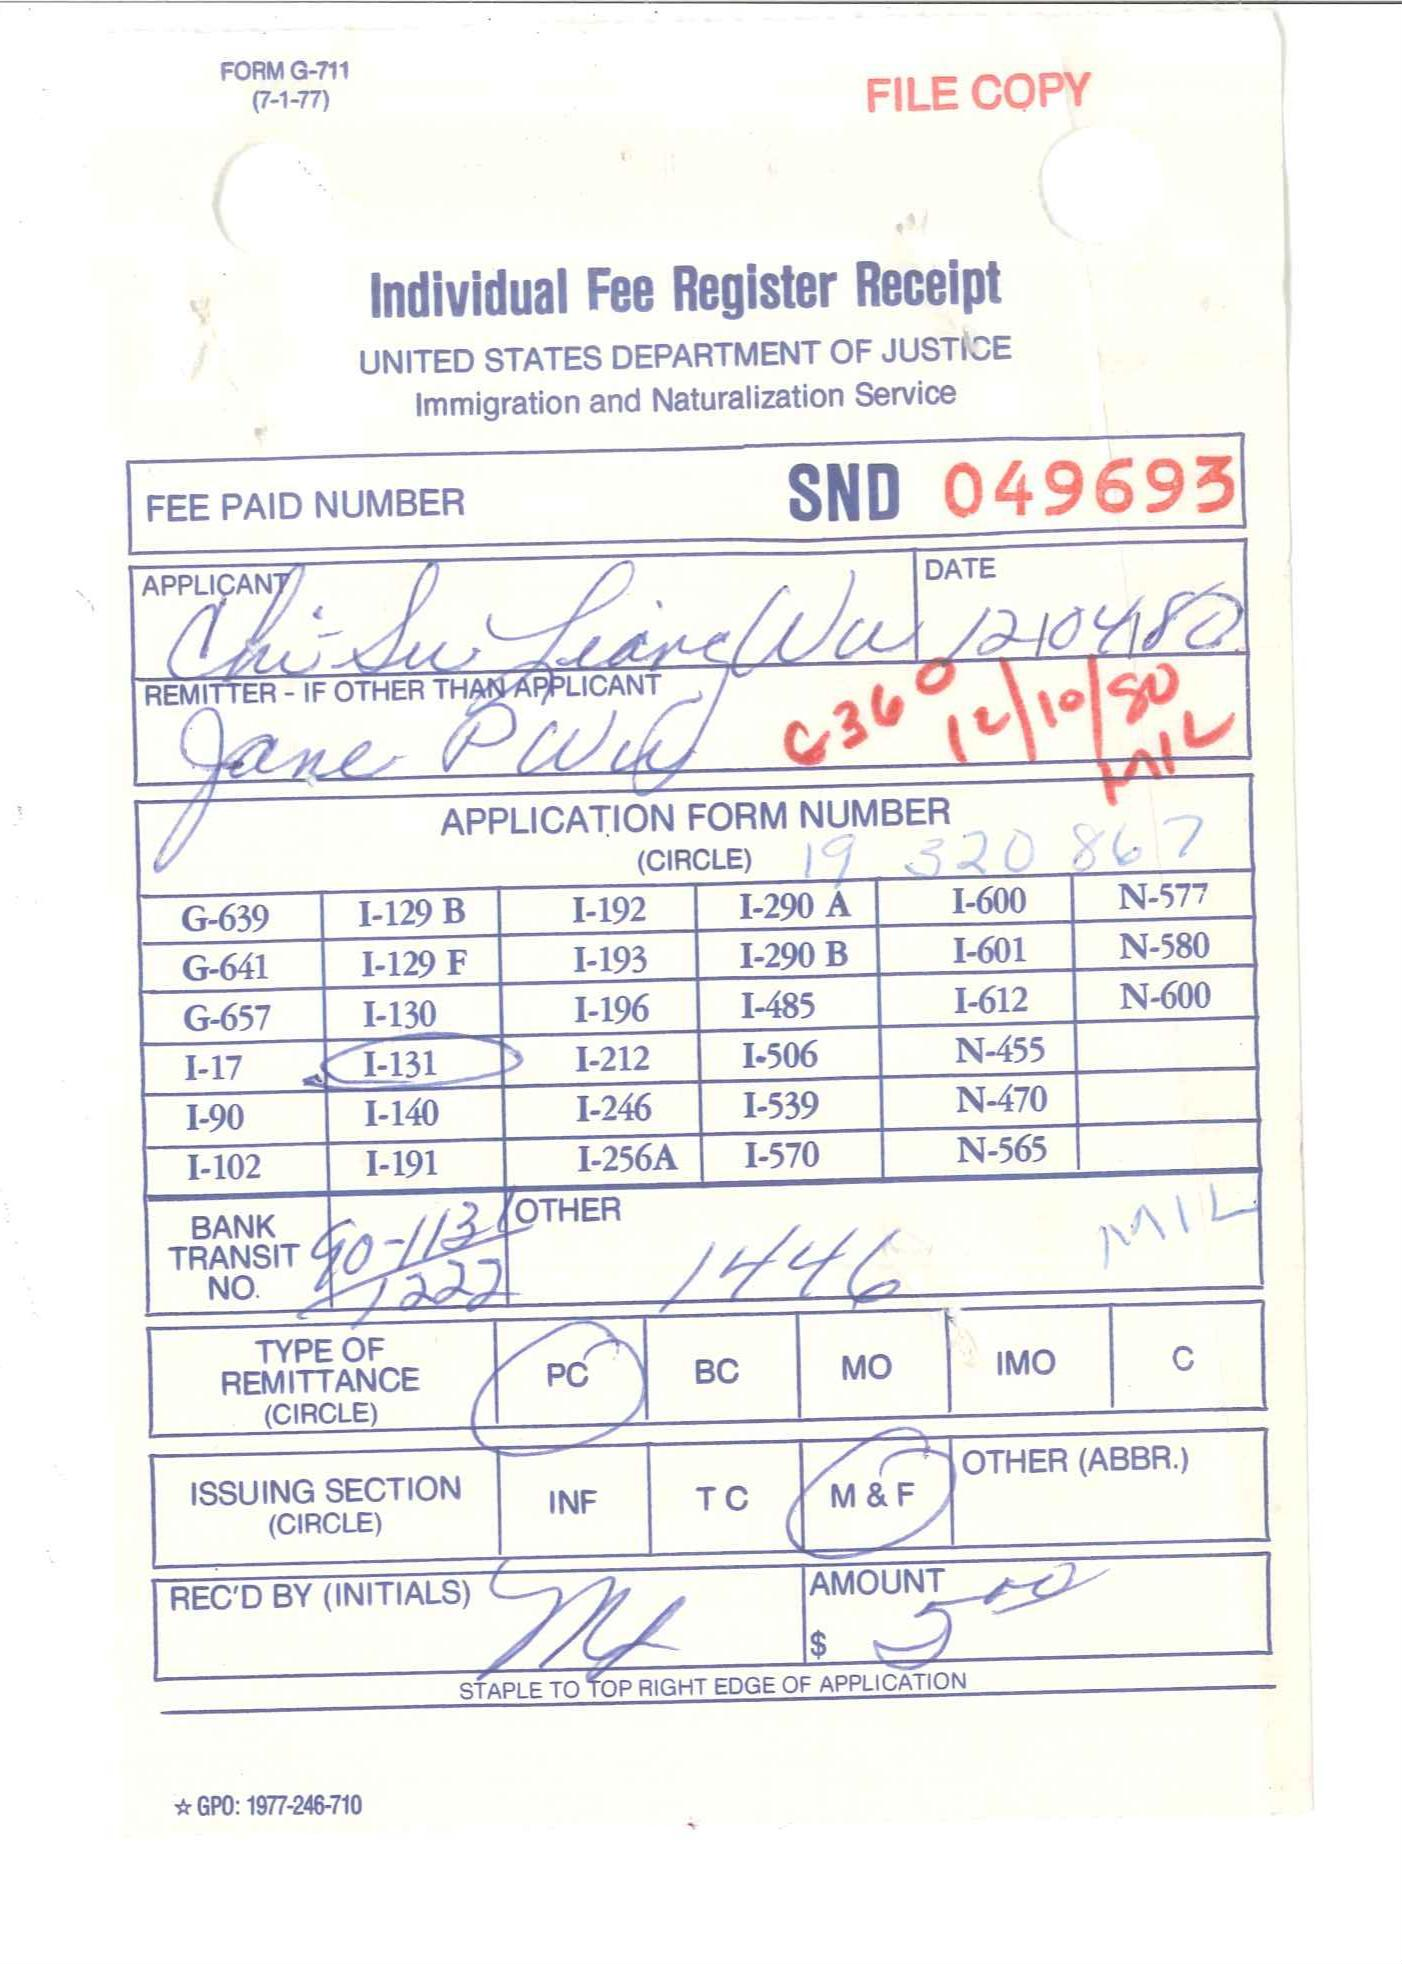 FORM G-711
(7-1-77)
FILE COPY
Individual Fee Register Receipt
UNITED STATES DEPARTMENT OF JUSTICE
Immigration and Naturalization Service
FEE PAID NUMBER SND 049693
APPLICANT DATE
Chi-Su Liang Wu 12/04/80
REMITTER - IF OTHER THAN APPLICANT
Jane P Wu G360 12/10/80
MIL
APPLICATION FORM NUMBER
(CIRCLE) 19 320 867
G-639 I-129 B I-192 I-290 A I-600 N-577
G-641 I-129 F I-193 I-290 B I-601 N-580
G-657 I-130 I-196 I-485 I-612 N-600
I-17 I-131 I-212 I-506 N-455
I-90 I-140 I-246 I-539 N-470
I-102 I-191 I-256A I-570 N-565
BANK TRANSIT NO. 90-1131/1222 OTHER 1446 MIL
TYPE OF REMITTANCE (CIRCLE) PC BC MO IMO C
ISSUING SECTION (CIRCLE) INF T C M & F OTHER (ABBR.)
REC'D BY (INITIALS) AMOUNT
$ 5.00
STAPLE TO TOP RIGHT EDGE OF APPLICATION
☆ GPO: 1977-246-710